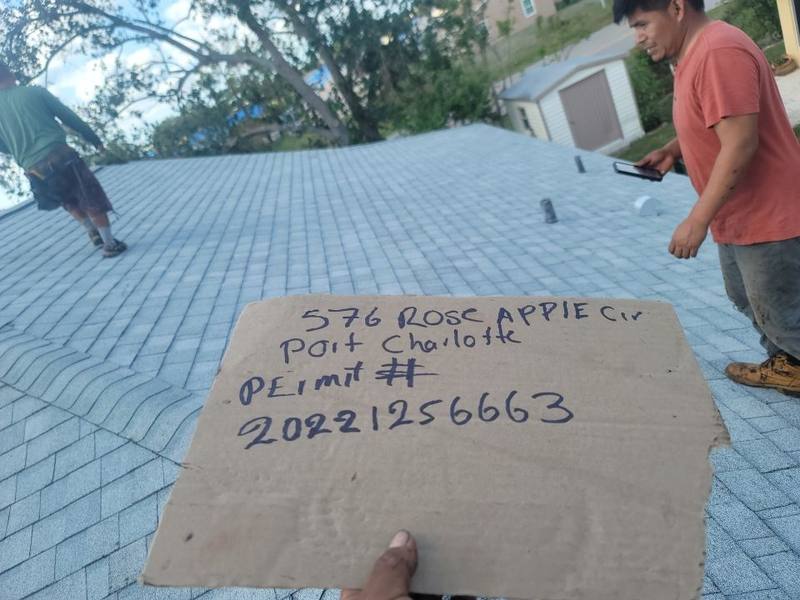 576 ROSE APPlE Cir
Port Charlotte
PErmit #
20221256663